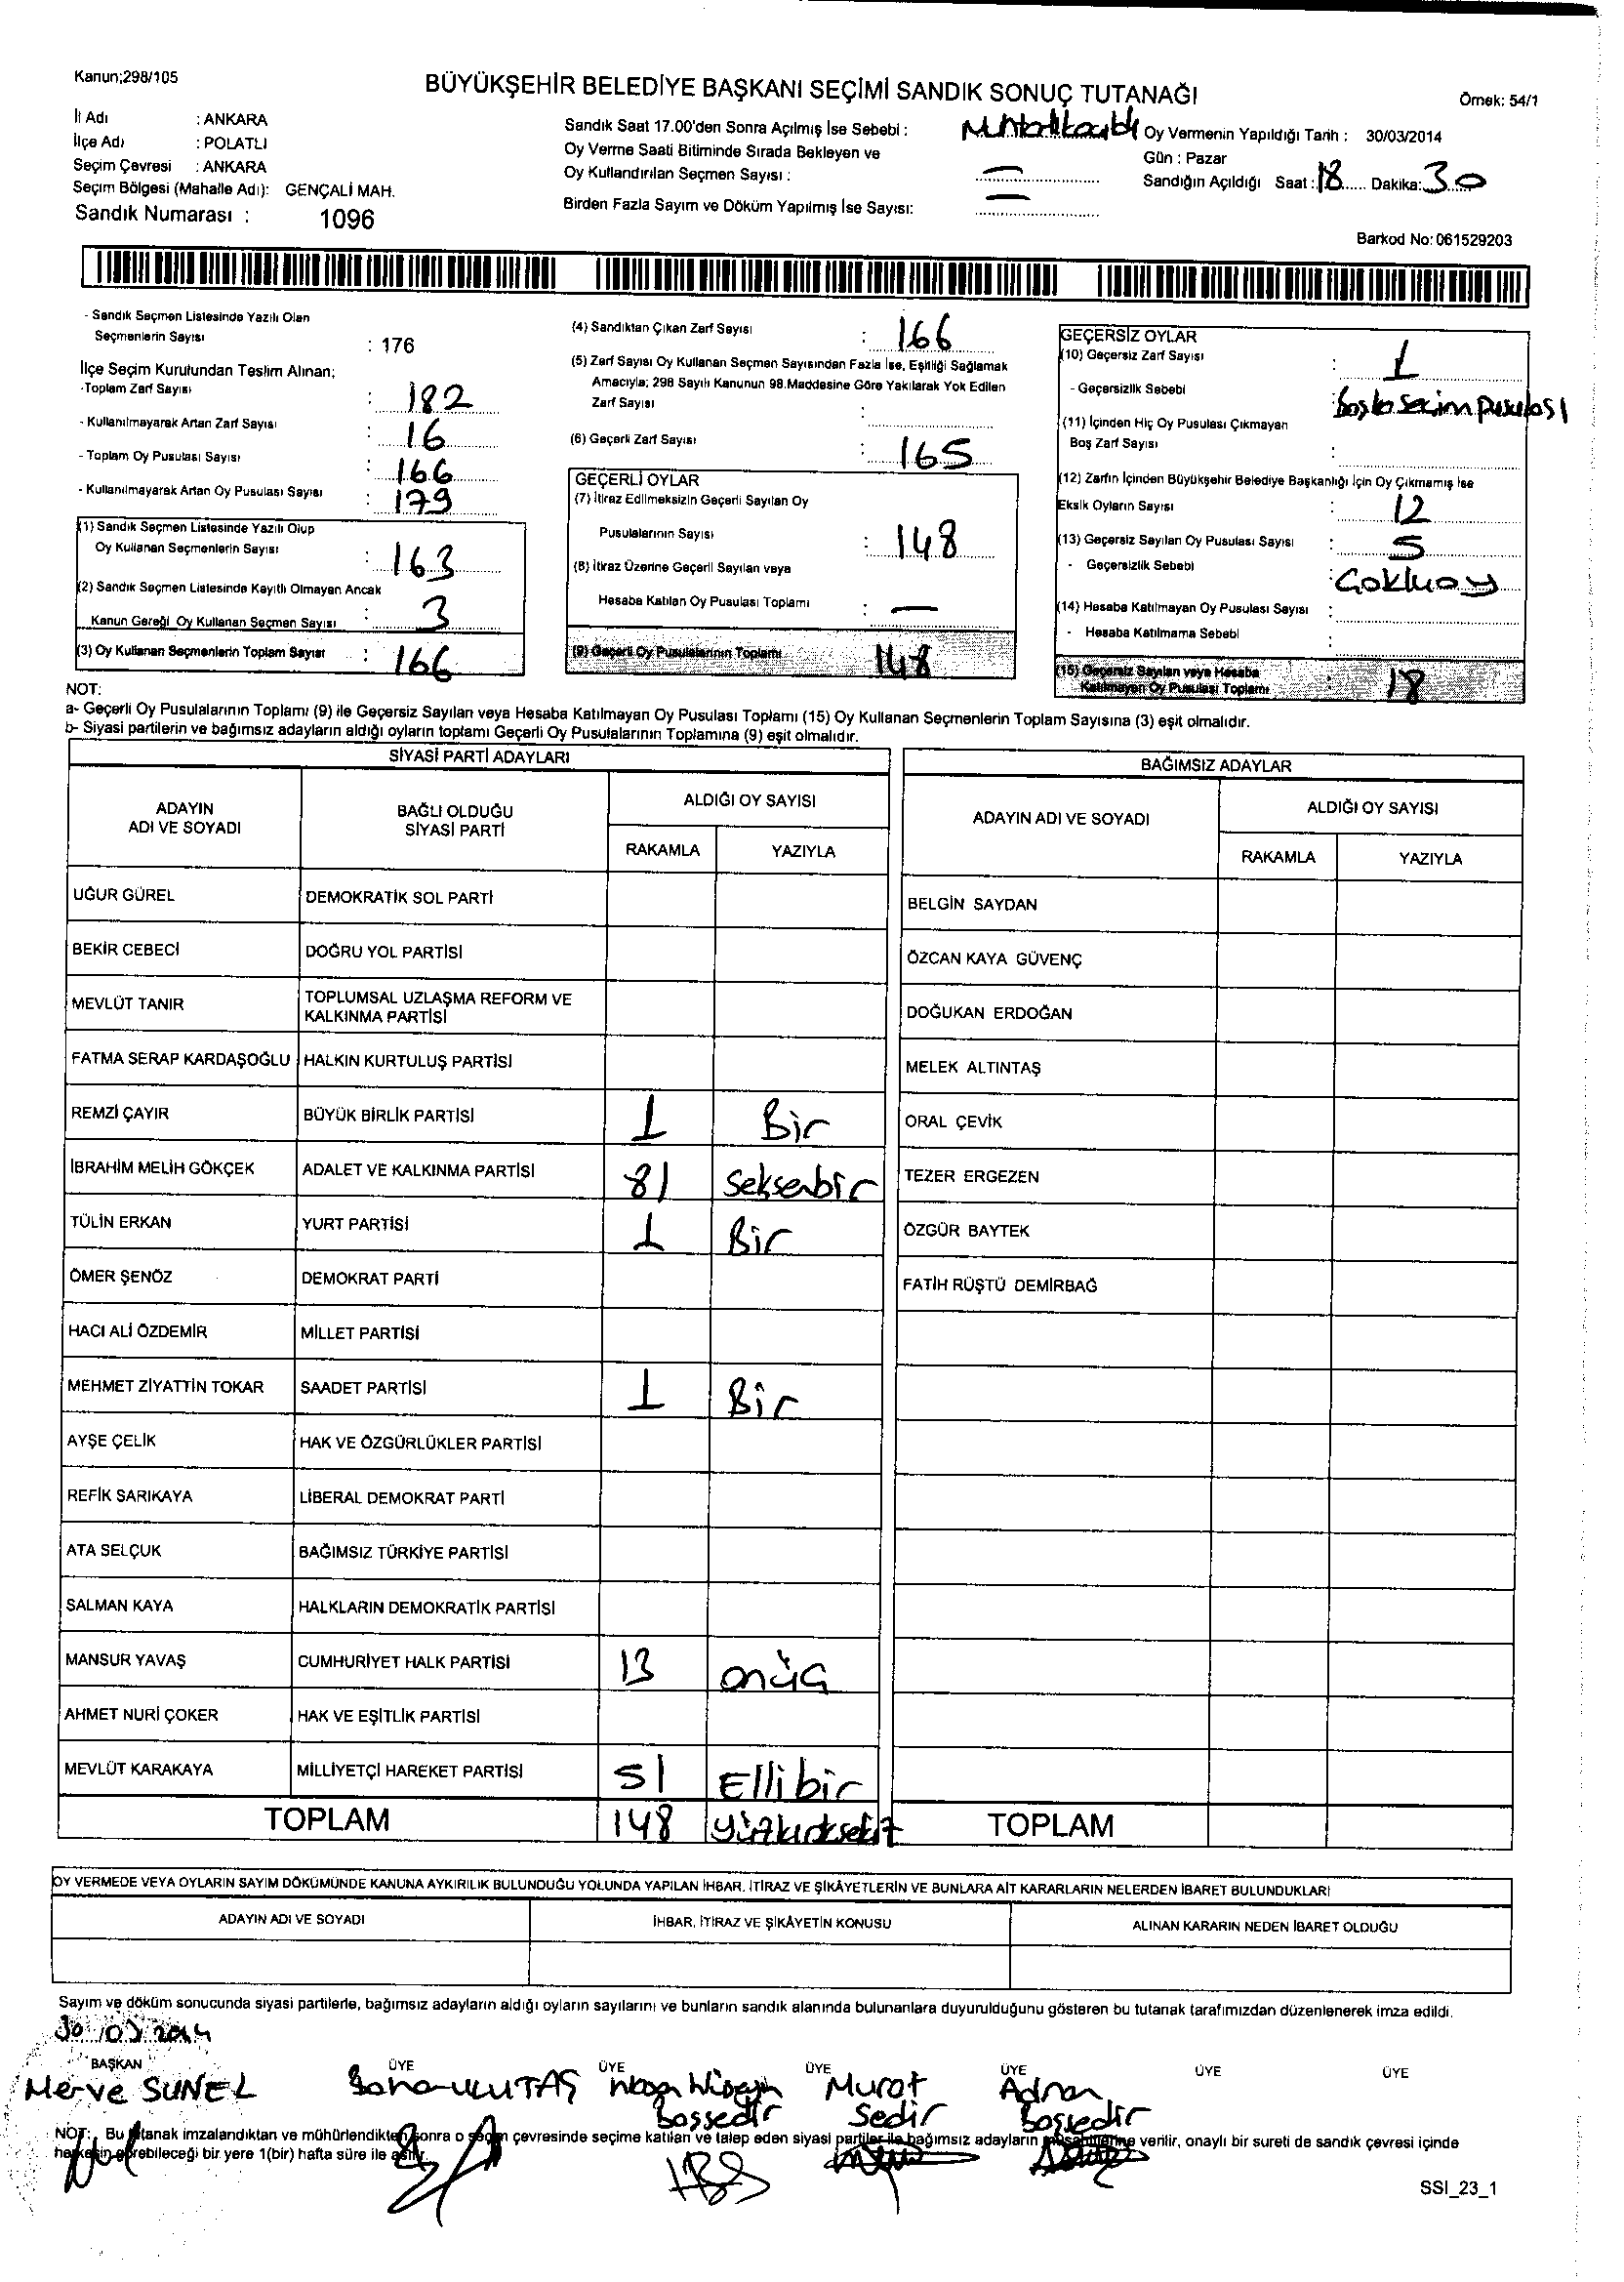 Kanun;298/105
BÜYÜKŞEHİR BELEDİYE BAŞKANI SEÇİMİ SANDIK SONUÇ TUTANAĞI
Örnek: 54/1
İl Adı : ANKARA
İlçe Adı : POLATLI
Seçim Çevresi : ANKARA
Seçim Bölgesi (Mahalle Adı): GENÇALİ MAH.
Sandık Numarası : 1096
Sandık Saat 17.00'den Sonra Açılmış İse Sebebi :
Oy Verme Saati Bitiminde Sırada Bekleyen ve
Oy Kullandırılan Seçmen Sayısı : —
Birden Fazla Sayım ve Döküm Yapılmış İse Sayısı: —
Oy Vermenin Yapıldığı Tarih : 30/03/2014
Gün : Pazar
Sandığın Açıldığı Saat : 18 Dakika: 30
Barkod No: 061529203
- Sandık Seçmen Listesinde Yazılı Olan
Seçmenlerin Sayısı : 176
İlçe Seçim Kurulundan Teslim Alınan;
-Toplam Zarf Sayısı : 182
- Kullanılmayarak Artan Zarf Sayısı : 16
- Toplam Oy Pusulası Sayısı : 166
- Kullanılmayarak Artan Oy Pusulası Sayısı : 179
(1) Sandık Seçmen Listesinde Yazılı Olup
Oy Kullanan Seçmenlerin Sayısı : 163
(2) Sandık Seçmen Listesinde Kayıtlı Olmayan Ancak
Kanun Gereği Oy Kullanan Seçmen Sayısı : 3
(3) Oy Kullanan Seçmenlerin Toplam Sayısı : 166
(4) Sandıktan Çıkan Zarf Sayısı : 166
(5) Zarf Sayısı Oy Kullanan Seçmen Sayısından Fazla İse, Eşitliği Sağlamak
Amacıyla; 298 Sayılı Kanunun 98.Maddesine Göre Yakılarak Yok Edilen
Zarf Sayısı :
(6) Geçerli Zarf Sayısı : 165
GEÇERLİ OYLAR
(7) İtiraz Edilmeksizin Geçerli Sayılan Oy
Pusulalarının Sayısı : 148
(8) İtiraz Üzerine Geçerli Sayılan veya
Hesaba Katılan Oy Pusulası Toplamı : —
(9) Geçerli Oy Pusulalarının Toplamı 148
GEÇERSİZ OYLAR
(10) Geçersiz Zarf Sayısı : 1
- Geçersizlik Sebebi : Başka seçim pusulası
(11) İçinden Hiç Oy Pusulası Çıkmayan
Boş Zarf Sayısı :
(12) Zarfın İçinden Büyükşehir Belediye Başkanlığı İçin Oy Çıkmamış İse
Eksik Oyların Sayısı : 12
(13) Geçersiz Sayılan Oy Pusulası Sayısı : 5
- Geçersizlik Sebebi :
(14) Hesaba Katılmayan Oy Pusulası Sayısı :
- Hesaba Katılmama Sebebi :
(15) Geçersiz Sayılan veya Hesaba
Katılmayan Oy Pusulası Toplamı : 18
NOT:
a- Geçerli Oy Pusulalarının Toplamı (9) ile Geçersiz Sayılan veya Hesaba Katılmayan Oy Pusulası Toplamı (15) Oy Kullanan Seçmenlerin Toplam Sayısına (3) eşit olmalıdır.
b- Siyasi partilerin ve bağımsız adayların aldığı oyların toplamı Geçerli Oy Pusulalarının Toplamına (9) eşit olmalıdır.
SİYASİ PARTİ ADAYLARI
ADAYIN ADI VE SOYADI BAĞLI OLDUĞU SİYASİ PARTİ ALDIĞI OY SAYISI
RAKAMLA YAZIYLA
UĞUR GÜREL DEMOKRATİK SOL PARTİ
BEKİR CEBECİ DOĞRU YOL PARTİSİ
MEVLÜT TANIR TOPLUMSAL UZLAŞMA REFORM VE KALKINMA PARTİSİ
FATMA SERAP KARDAŞOĞLU HALKIN KURTULUŞ PARTİSİ
REMZİ ÇAYIR BÜYÜK BİRLİK PARTİSİ 1 Bir
İBRAHİM MELİH GÖKÇEK ADALET VE KALKINMA PARTİSİ 81 Seksenbir
TÜLİN ERKAN YURT PARTİSİ 1 Bir
ÖMER ŞENÖZ DEMOKRAT PARTİ
HACI ALİ ÖZDEMİR MİLLET PARTİSİ
MEHMET ZİYATTİN TOKAR SAADET PARTİSİ 1 Bir
AYŞE ÇELİK HAK VE ÖZGÜRLÜKLER PARTİSİ
REFİK SARIKAYA LİBERAL DEMOKRAT PARTİ
ATA SELÇUK BAĞIMSIZ TÜRKİYE PARTİSİ
SALMAN KAYA HALKLARIN DEMOKRATİK PARTİSİ
MANSUR YAVAŞ CUMHURİYET HALK PARTİSİ 13 onüç
AHMET NURİ ÇOKER HAK VE EŞİTLİK PARTİSİ
MEVLÜT KARAKAYA MİLLİYETÇİ HAREKET PARTİSİ 51 Ellibir
TOPLAM 148 yüzkırksekiz
BAĞIMSIZ ADAYLAR
ADAYIN ADI VE SOYADI ALDIĞI OY SAYISI
RAKAMLA YAZIYLA
BELGİN SAYDAN
ÖZCAN KAYA GÜVENÇ
DOĞUKAN ERDOĞAN
MELEK ALTINTAŞ
ORAL ÇEVİK
TEZER ERGEZEN
ÖZGÜR BAYTEK
FATİH RÜŞTÜ DEMİRBAĞ
TOPLAM
OY VERMEDE VEYA OYLARIN SAYIM DÖKÜMÜNDE KANUNA AYKIRILIK BULUNDUĞU YOLUNDA YAPILAN İHBAR, İTİRAZ VE ŞİKÂYETLERİN VE BUNLARA AİT KARARLARIN NELERDEN İBARET BULUNDUKLARI
ADAYIN ADI VE SOYADI İHBAR, İTİRAZ VE ŞİKÂYETİN KONUSU ALINAN KARARIN NEDEN İBARET OLDUĞU
Sayım ve döküm sonucunda siyasi partilerle, bağımsız adayların aldığı oyların sayılarını ve bunların sandık alanında bulunanlara duyurulduğunu gösteren bu tutanak tarafımızdan düzenlenerek imza edildi.
30/03/2014
BAŞKAN ÜYE ÜYE ÜYE ÜYE ÜYE ÜYE
Merve SUNEL ULUTAŞ Murat Adnan
Başsedir Sedir Başsedir
NOT: Bu tutanak imzalandıktan ve mühürlendikten sonra o seçim çevresinde seçime katılan ve talep eden siyasi partiler ile bağımsız adayların müşahitlerine verilir, onaylı bir sureti de sandık çevresi içinde
herkesin görebileceği bir yere 1(bir) hafta süre ile asılır.
SSI_23_1